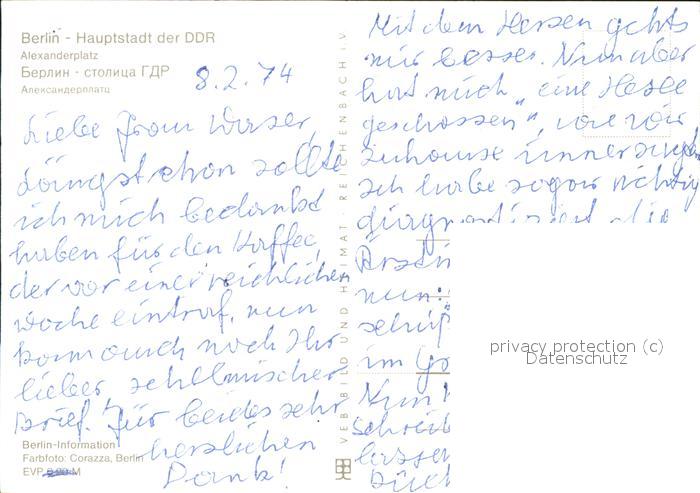 Berlin - Hauptstadt der DDR
Alexanderplatz
Берлин - столица ГДР
Александерплатц
8.2.74
Liebe Frau
Längst schon sollte
ich mich bedankt
haben für den Kaffee,
der vor einer reichlichen
Woche eintraf, nun
kam auch noch Ihr
lieber
Brief. Für beides sehr
herzlichen
Dank!
Berlin-Information
Farbfoto: Corazza, Berlin
EVP
VEB BILD UND HEIMAT · REICHENBACH i. V.
Mit dem Herzen gehts
mir besser. Nun aber
hat mich „eine Hexe
geschossen“, wie wir
zuhause immer
Ich habe sogar richtig
diagnostiziert, die
Ärztin
nun:
im
Nun
privacy protection (c)
Datenschutz